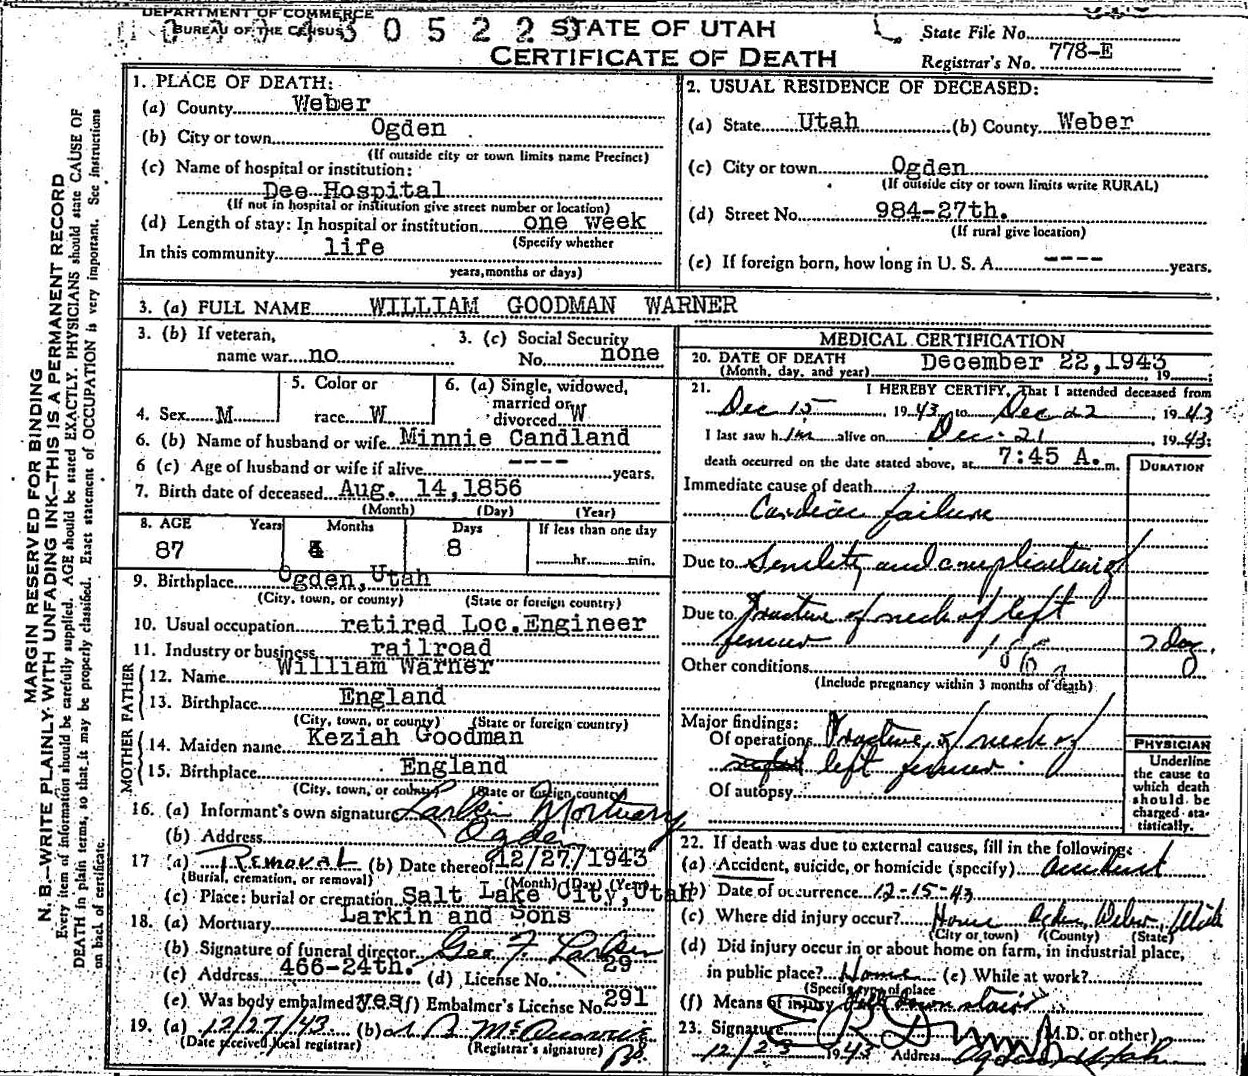 DEPARTMENT OF COMMERCE
BUREAU OF THE CENSUS
STATE OF UTAH
CERTIFICATE OF DEATH
State File No.
Registrar's No. 778-E
MARGIN RESERVED FOR BINDING
N. B.—WRITE PLAINLY WITH UNFADING INK—THIS IS A PERMANENT RECORD
Every item of information should be carefully supplied. AGE should be stated EXACTLY. PHYSICIANS should state CAUSE OF
DEATH in plain terms, so that it may be properly classified. Exact statement of OCCUPATION is very important. See instructions
on back of certificate.
1. PLACE OF DEATH:
(a) County Weber
(b) City or town Ogden
(If outside city or town limits name Precinct)
(c) Name of hospital or institution:
Dee Hospital
(If not in hospital or institution give street number or location)
(d) Length of stay: In hospital or institution one week
(Specify whether
In this community life
years, months or days)
2. USUAL RESIDENCE OF DECEASED:
(a) State Utah (b) County Weber
(c) City or town Ogden
(If outside city or town limits write RURAL)
(d) Street No. 984-27th.
(If rural give location)
(e) If foreign born, how long in U. S. A. ---- years.
3. (a) FULL NAME WILLIAM GOODMAN WARNER
3. (b) If veteran,
name war no
3. (c) Social Security
No. none
4. Sex M
5. Color or
race W
6. (a) Single, widowed,
married or
divorced W
6. (b) Name of husband or wife Minnie Candland
6 (c) Age of husband or wife if alive ---- years.
7. Birth date of deceased Aug. 14,1856
(Month) (Day) (Year)
8. AGE Years Months Days If less than one day
87 4 8 hr. min.
9. Birthplace Ogden,Utah
(City, town, or county) (State or foreign country)
10. Usual occupation retired Loc.Engineer
11. Industry or business railroad
FATHER
12. Name William Warner
13. Birthplace England
(City, town, or county) (State or foreign country)
MOTHER
14. Maiden name Keziah Goodman
15. Birthplace England
(City, town, or county) (State or foreign country)
16. (a) Informant's own signature Larkin Mortuary
(b) Address Ogden
17 (a) Removal (b) Date thereof 12/27/1943
(Burial, cremation, or removal) (Month) (Day) (Year)
(c) Place: burial or cremation Salt Lake City,Utah
18. (a) Mortuary Larkin and Sons
(b) Signature of funeral director Geo F. Larkin
(c) Address 466-24th. (d) License No. 29
(e) Was body embalmed? yes (f) Embalmer's License No. 291
19. (a) 12/27/43 (b)
(Date received local registrar) (Registrar's signature)
MEDICAL CERTIFICATION
20. DATE OF DEATH December 22,1943
(Month, day, and year) 19
21. I HEREBY CERTIFY, That I attended deceased from
Dec 15 1943 to Dec 22, 1943
I last saw him alive on Dec. 21 1943:
death occurred on the date stated above, at 7:45 A. m.
DURATION
Immediate cause of death
Cardiac failure
Due to Senility and complicating
Due to Fracture of neck of left
femur 7 day.
Other conditions
(Include pregnancy within 3 months of death)
Major findings:
Of operations Fracture of neck of
left femur.
Of autopsy
PHYSICIAN
Underline
the cause to
which death
should be
charged sta-
tistically.
22. If death was due to external causes, fill in the following:
(a) Accident, suicide, or homicide (specify) accident
(b) Date of occurrence 12-15-43
(c) Where did injury occur? Home Ogden, Weber, Utah
(City or town) (County) (State)
(d) Did injury occur in or about home on farm, in industrial place,
in public place? Home (e) While at work?
(Specify type of place
(f) Means of injury Fell down stairs
23. Signature (M.D. or other)
12/23 1943 Address Ogden Utah